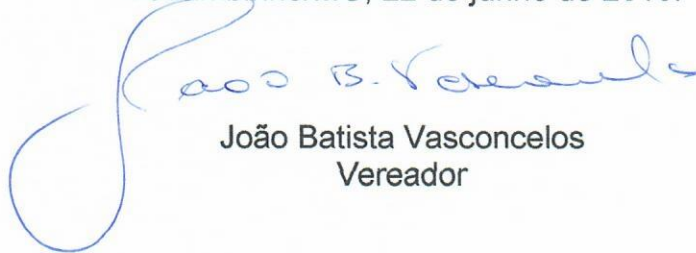 22 de junho de
João B. Vasconcelos
João Batista Vasconcelos
Vereador